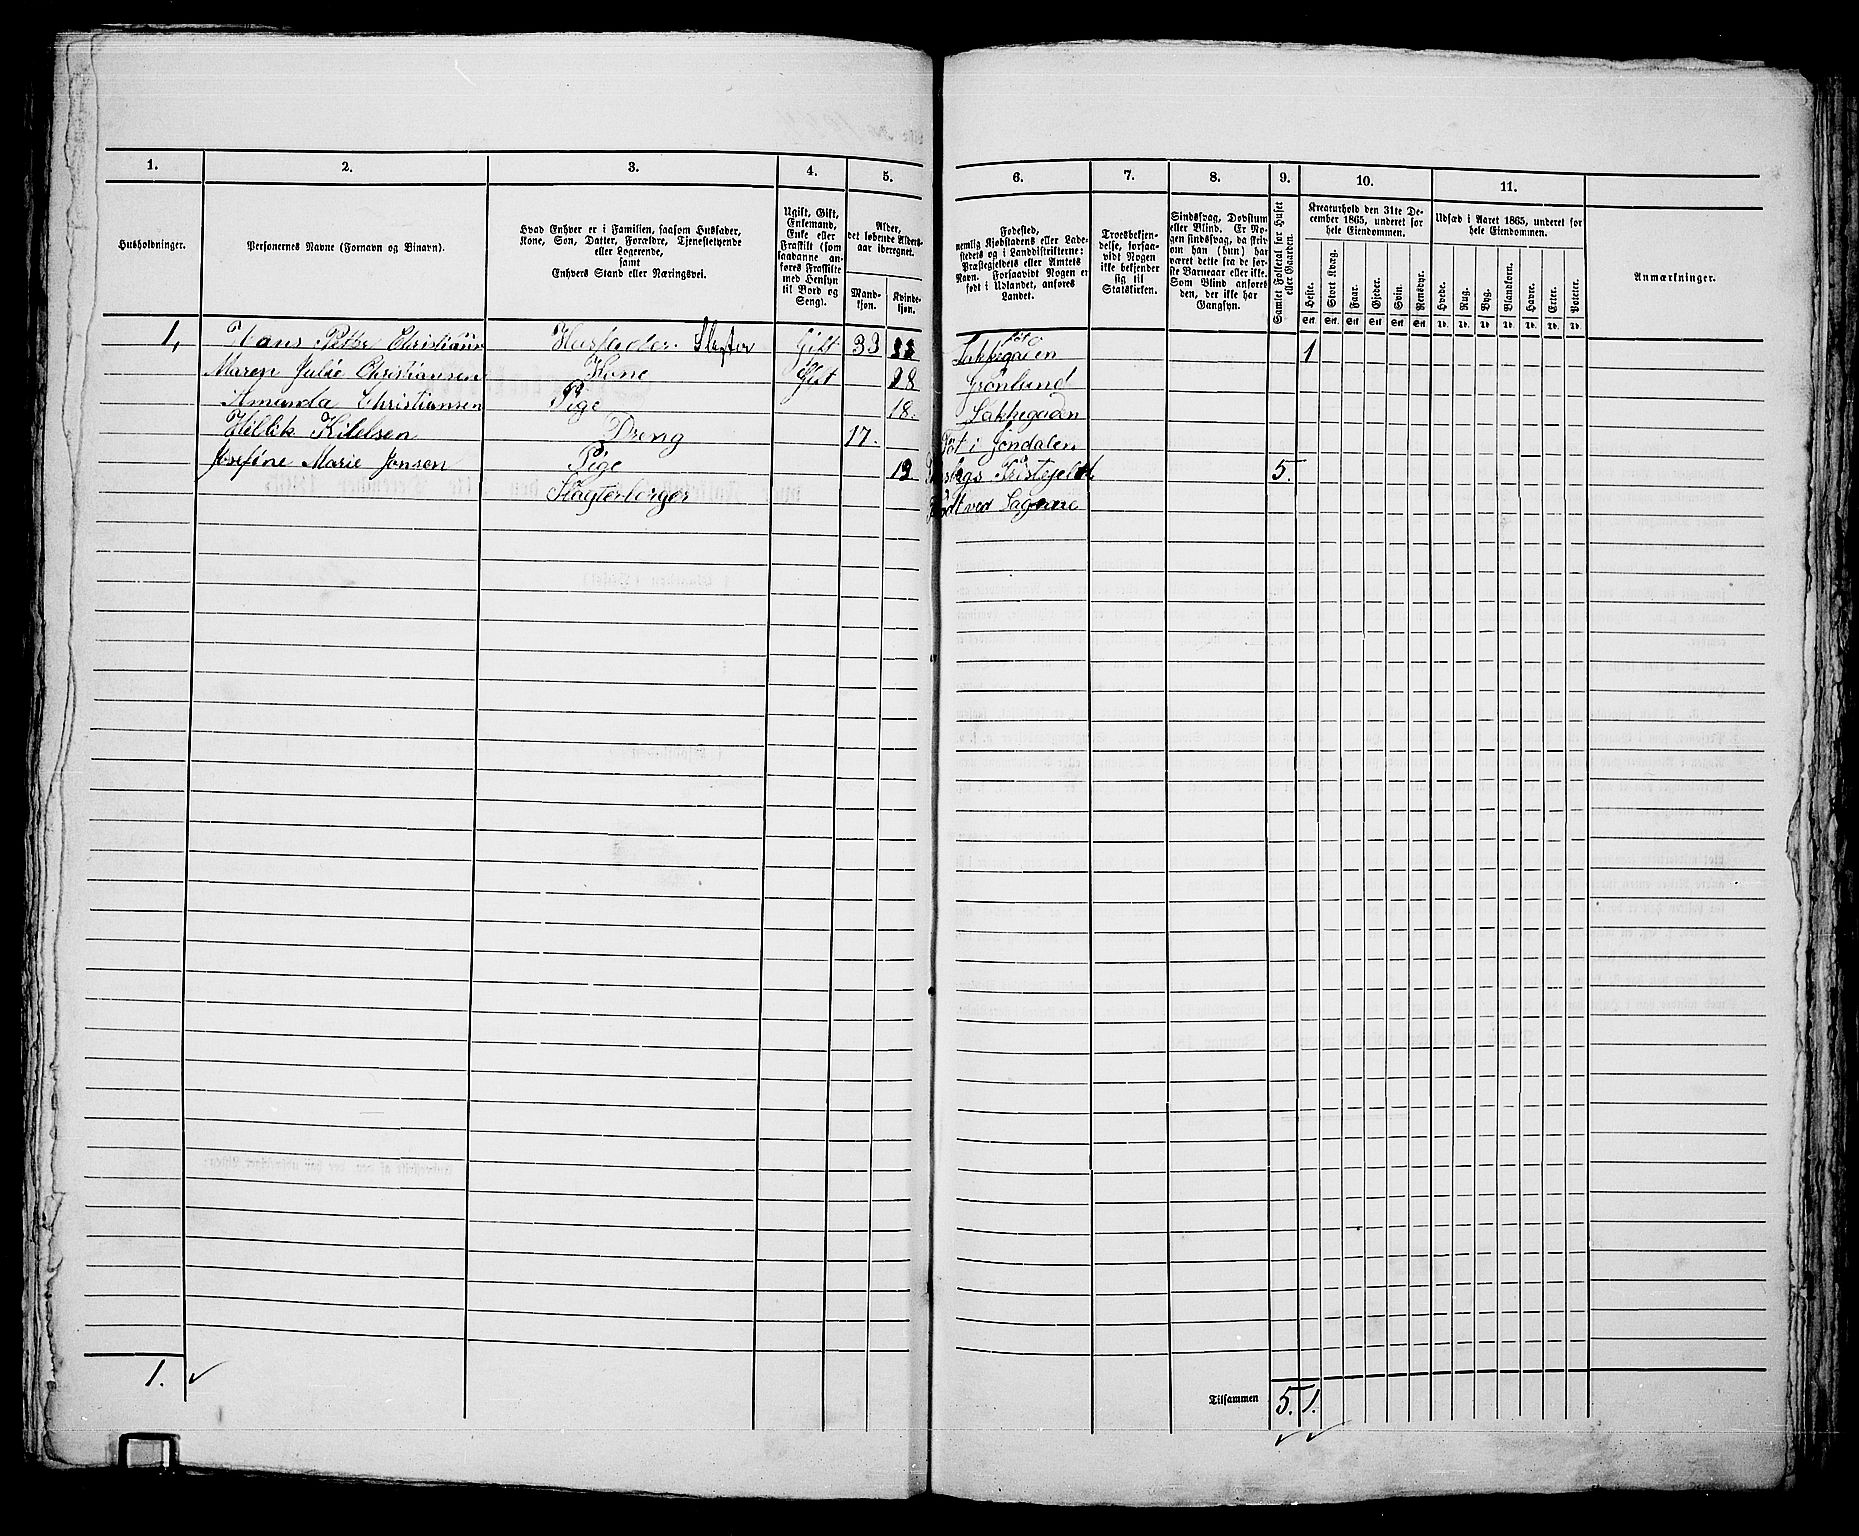 1.
2.
3.
4.
5.
6.
7.
8.
9.
10.
11.
Husholdninger.
Personernes Navne (Fornavn og Binavn).
Hvad Enhver er i Familien, saasom Husfader,
Kone, Søn, Datter, Forældre, Tjenestetyende
eller Logerende,
samt
Enhvers Stand eller Næringsvei.
Ugift, Gift,
Enkemand,
Enke eller
Fraskilt (som
saadanne an-
føres Fraskilte
med Hensyn
til Bord og
Seng).
Alder,
det løbende Alders-
aar iberegnet.
Mand-
kjøn.
Kvinde-
kjøn.
Fødested,
nemlig Kjøbstadens eller Lade-
stedets og i Landdistrikterne:
Præstegjeldets eller Amtets
Navn. Forsaavidt Nogen er
født i Udlandet, anføres
Landet.
Troesbekjen-
delse, forsaa-
vidt Nogen
ikke bekjender
sig til
Statskirken.
Sindssvag, Døvstum
eller Blind. Er No-
gen sindssvag, da skriv
om han (hun) har
været dette fra de før-
ste Barneaar eller ikke.
Som Blind anføres
den, der ikke har
Gangsyn.
Samlet Folketal for Huset
eller Gaarden.
Kreaturhold den 31te De-
cember 1865, underet for
hele Eiendommen.
Heste.
Stort Kvæg.
Faar.
Gjeder.
Svin.
Rensdyr.
Stk. Stk. Stk. Stk. Stk. Stk.
Udsæd i Aaret 1865, underet for
hele Eiendommen.
Hvede.
Rug.
Byg.
Blandkorn.
Havre.
Erter.
Poteter.
Td. Td. Td. Td. Td. Td. Td.
Anmærkninger.
1, Hans Petter Christians Husfader Slagter Gift 33 Sakkegaden 1
Maren Julie Christiansen Kone Gift 28 Grønlund
Amanda Christiansen Pige 18. Sakkegaden
Kitelsen Dreng 17. Föt i Jondalen
Josefine Marie Jonsen Pige 19 5.
Slagterborger Födt ved Sagene
1.
Tilsammen 5. 1.